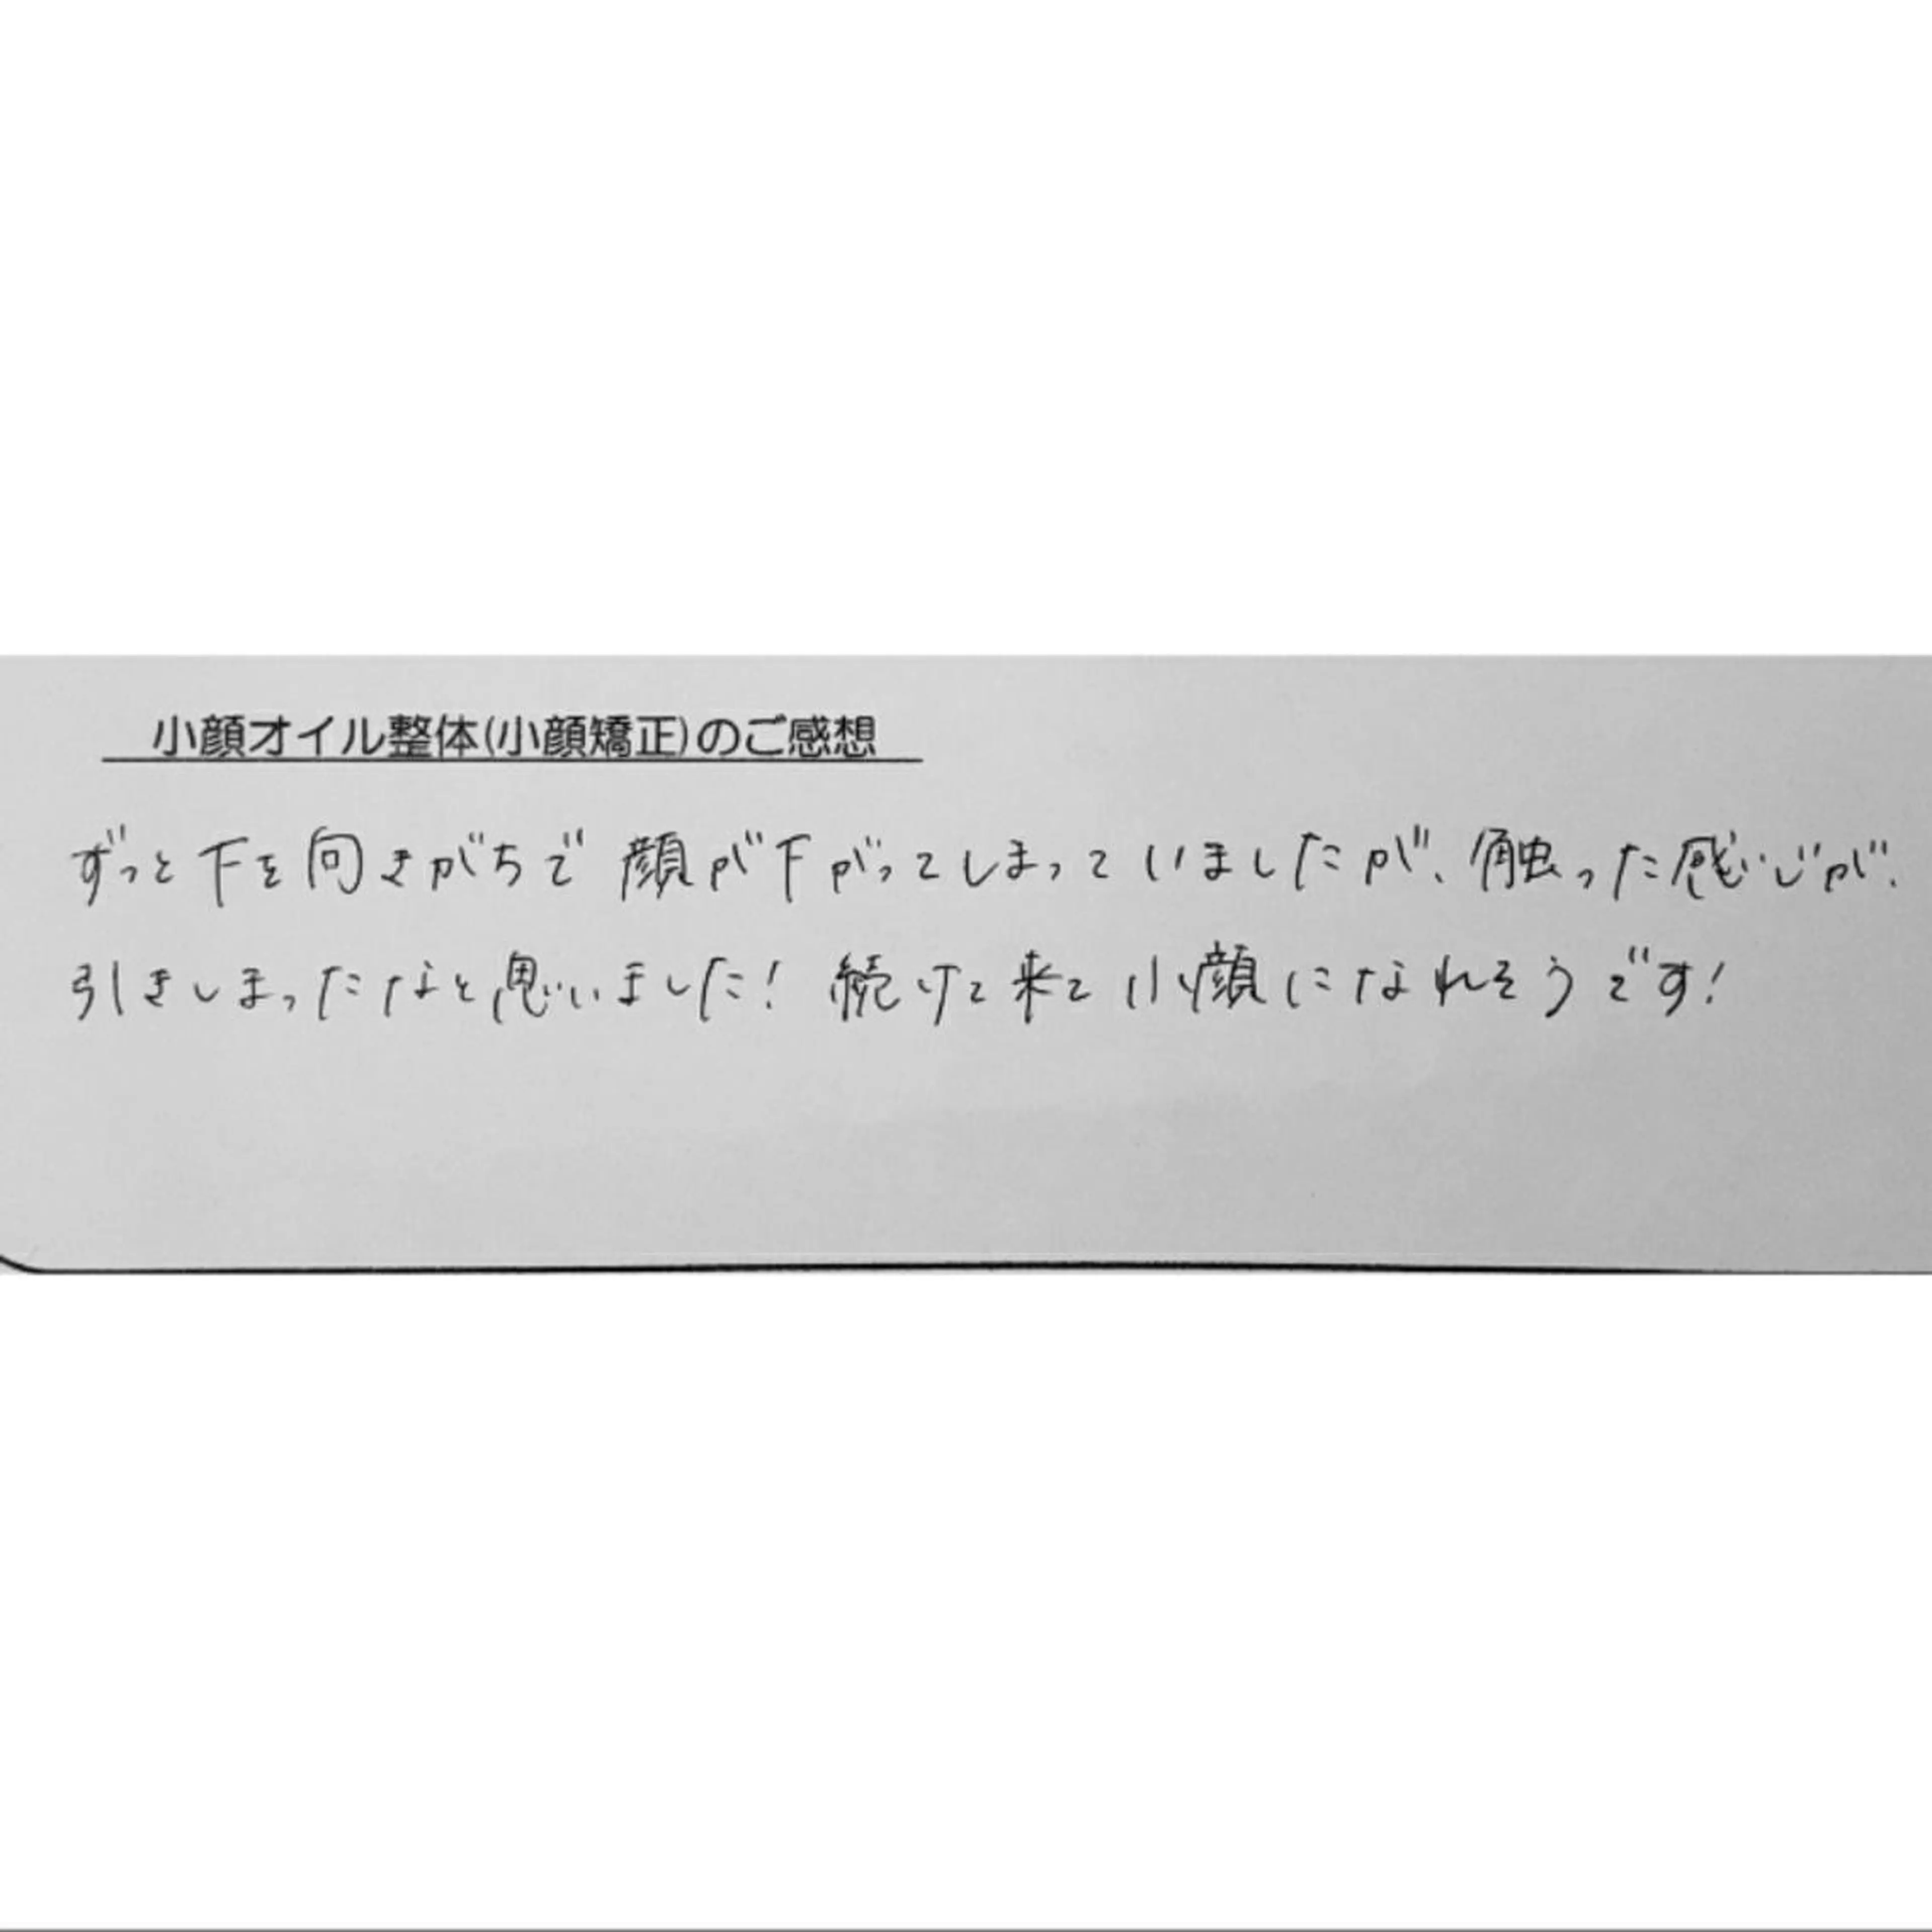 小顔オイル整体(小顔矯正)のご感想
ずっと下を向きがちで顔が下がってしまっていましたが、触った感じが、
引きしまったなと思いました！続けて来て小顔になれそうです！